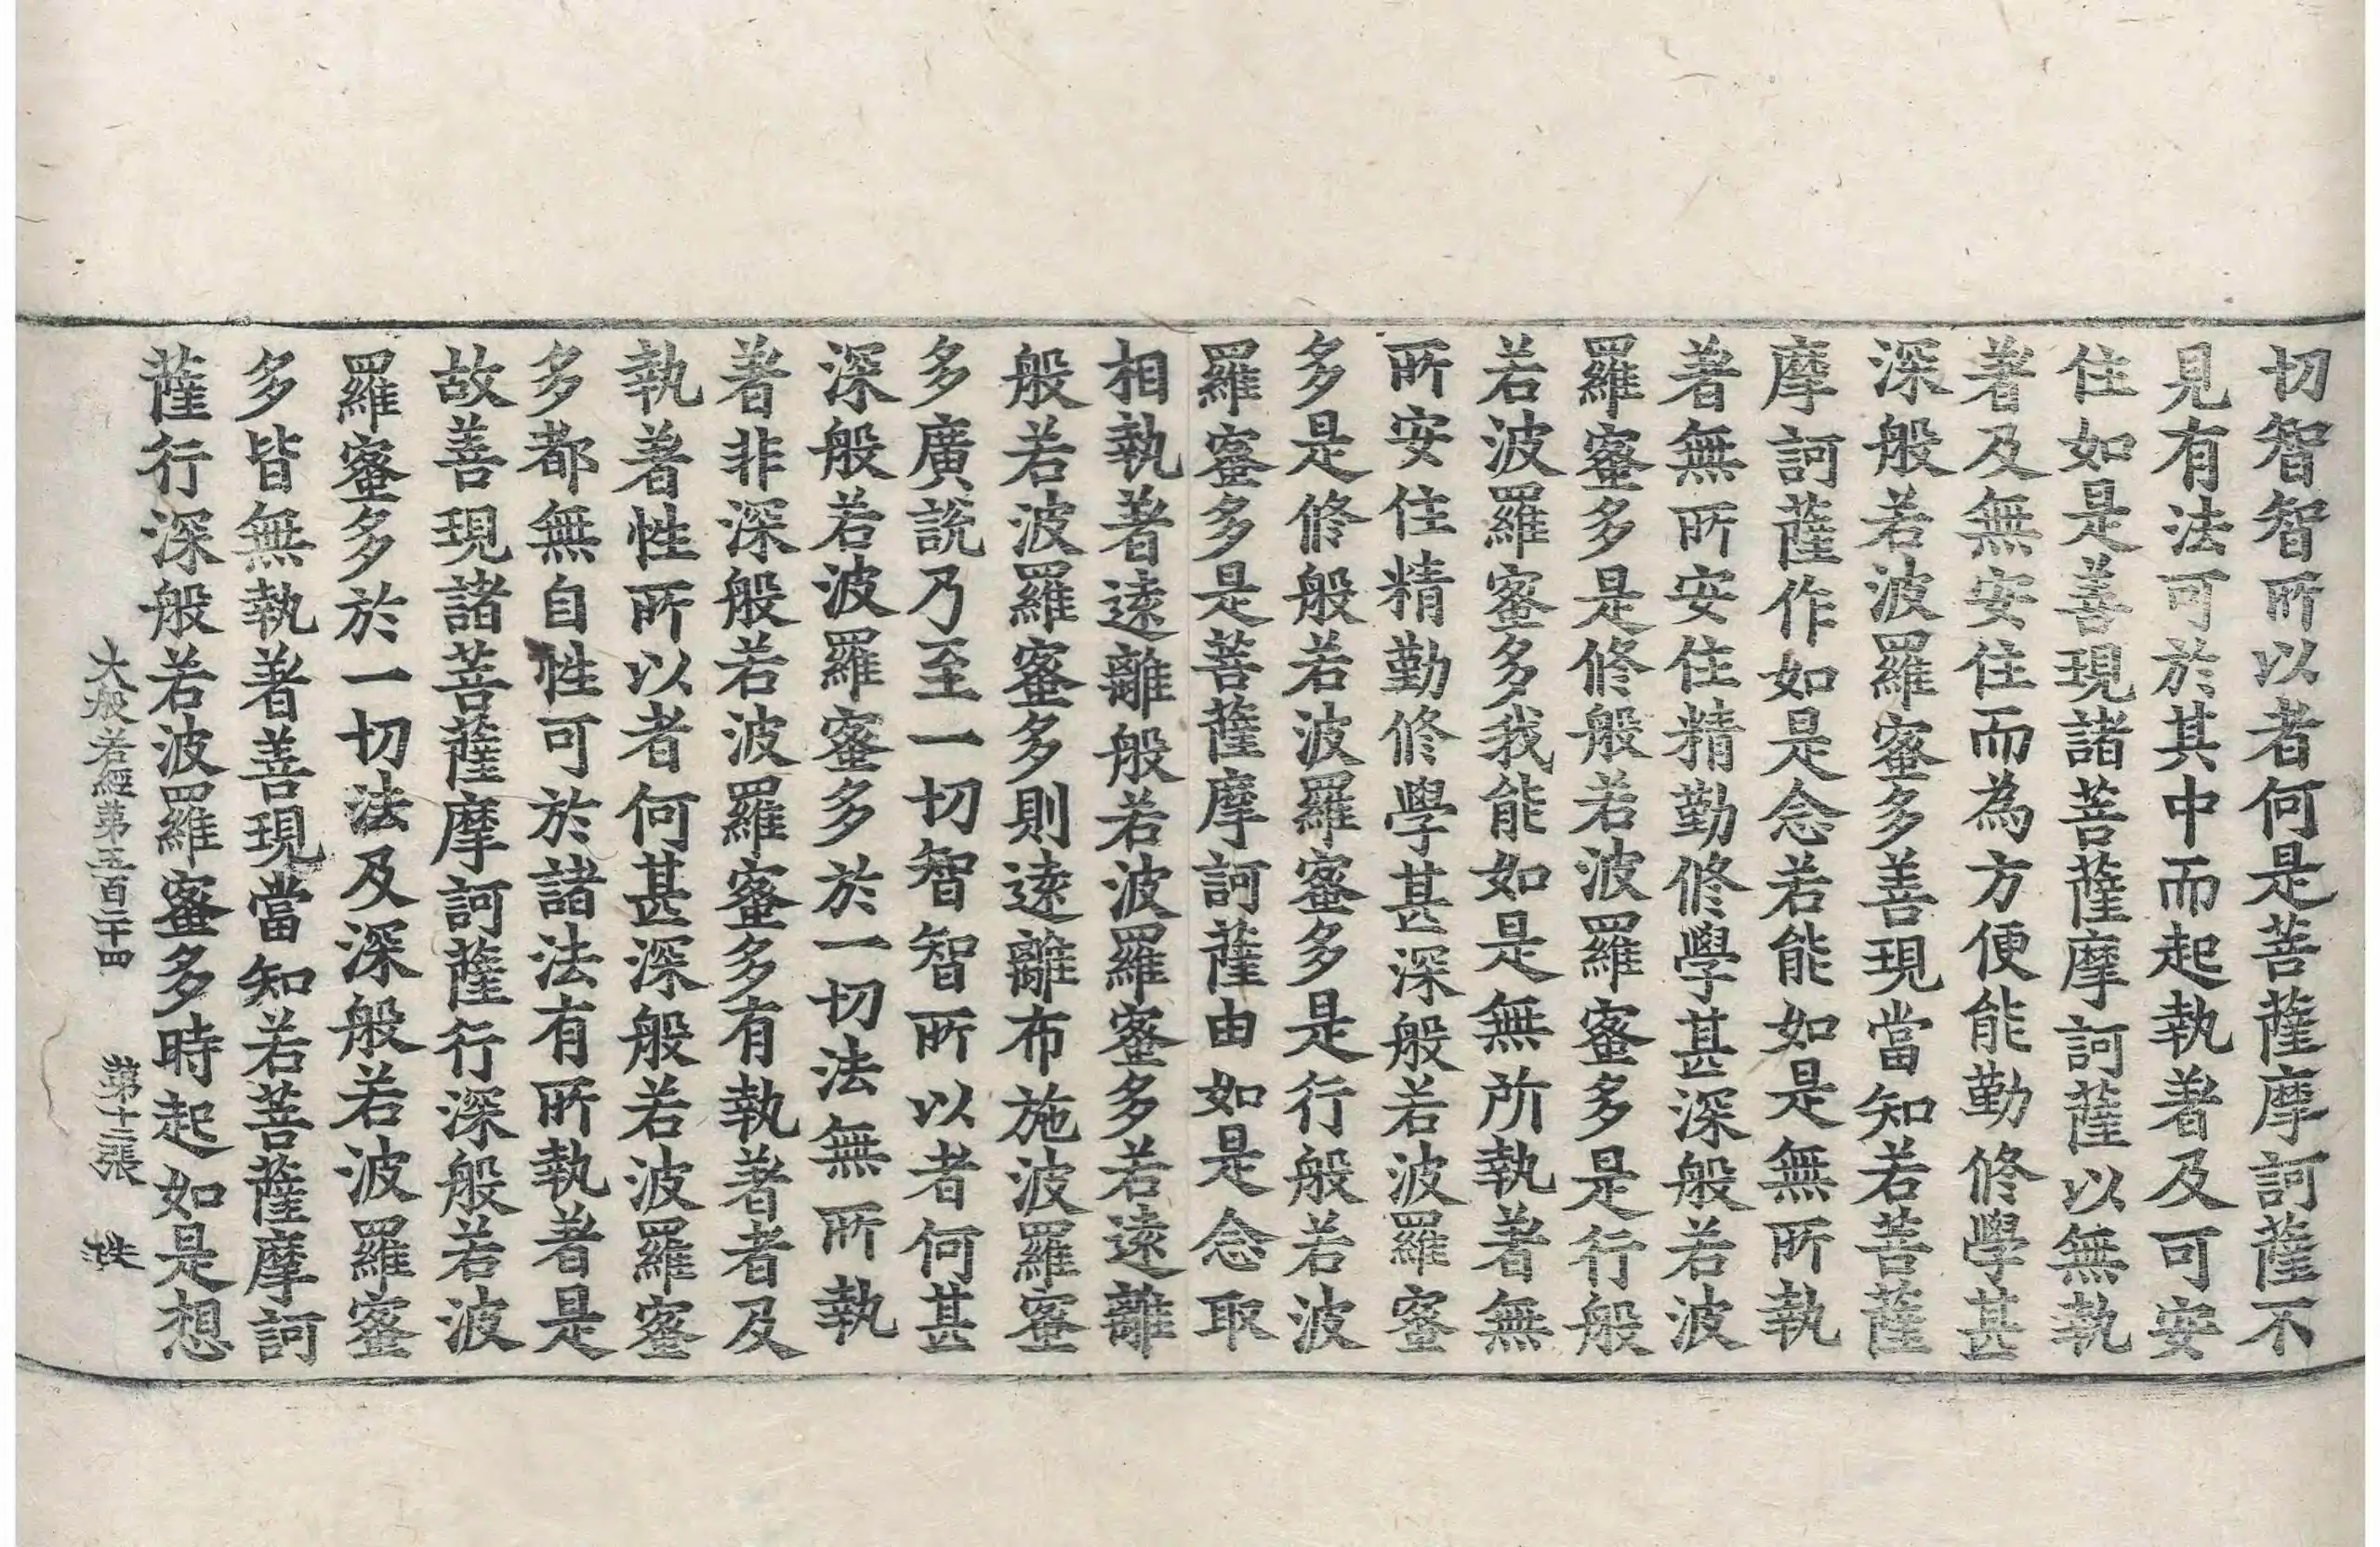 切智智所以者何是菩薩摩訶薩不
見有法可於其中而起執著及可安
住如是善現諸菩薩摩訶薩以無執
著及無安住而為方便能勤修學甚
深般若波羅蜜多善現當知若菩薩
摩訶薩作如是念若能如是無所執
著無所安住精勤修學甚深般若波
羅蜜多是修般若波羅蜜多是行般
若波羅蜜多我能如是無所執著無
所安住精勤修學甚深般若波羅蜜
多是修般若波羅蜜多是行般若波
羅蜜多是菩薩摩訶薩由如是念取
相執著遠離般若波羅蜜多若遠離
般若波羅蜜多則遠離布施波羅蜜
多廣說乃至一切智智所以者何甚
深般若波羅蜜多於一切法無所執
著非深般若波羅蜜多有執著者及
執著性所以者何甚深般若波羅蜜
多都無自性可於諸法有所執著是
故善現諸菩薩摩訶薩行深般若波
羅蜜多於一切法及深般若波羅蜜
多皆無執著善現當知若菩薩摩訶
薩行深般若波羅蜜多時起如是想
大般若經第五百二十四 第十二張